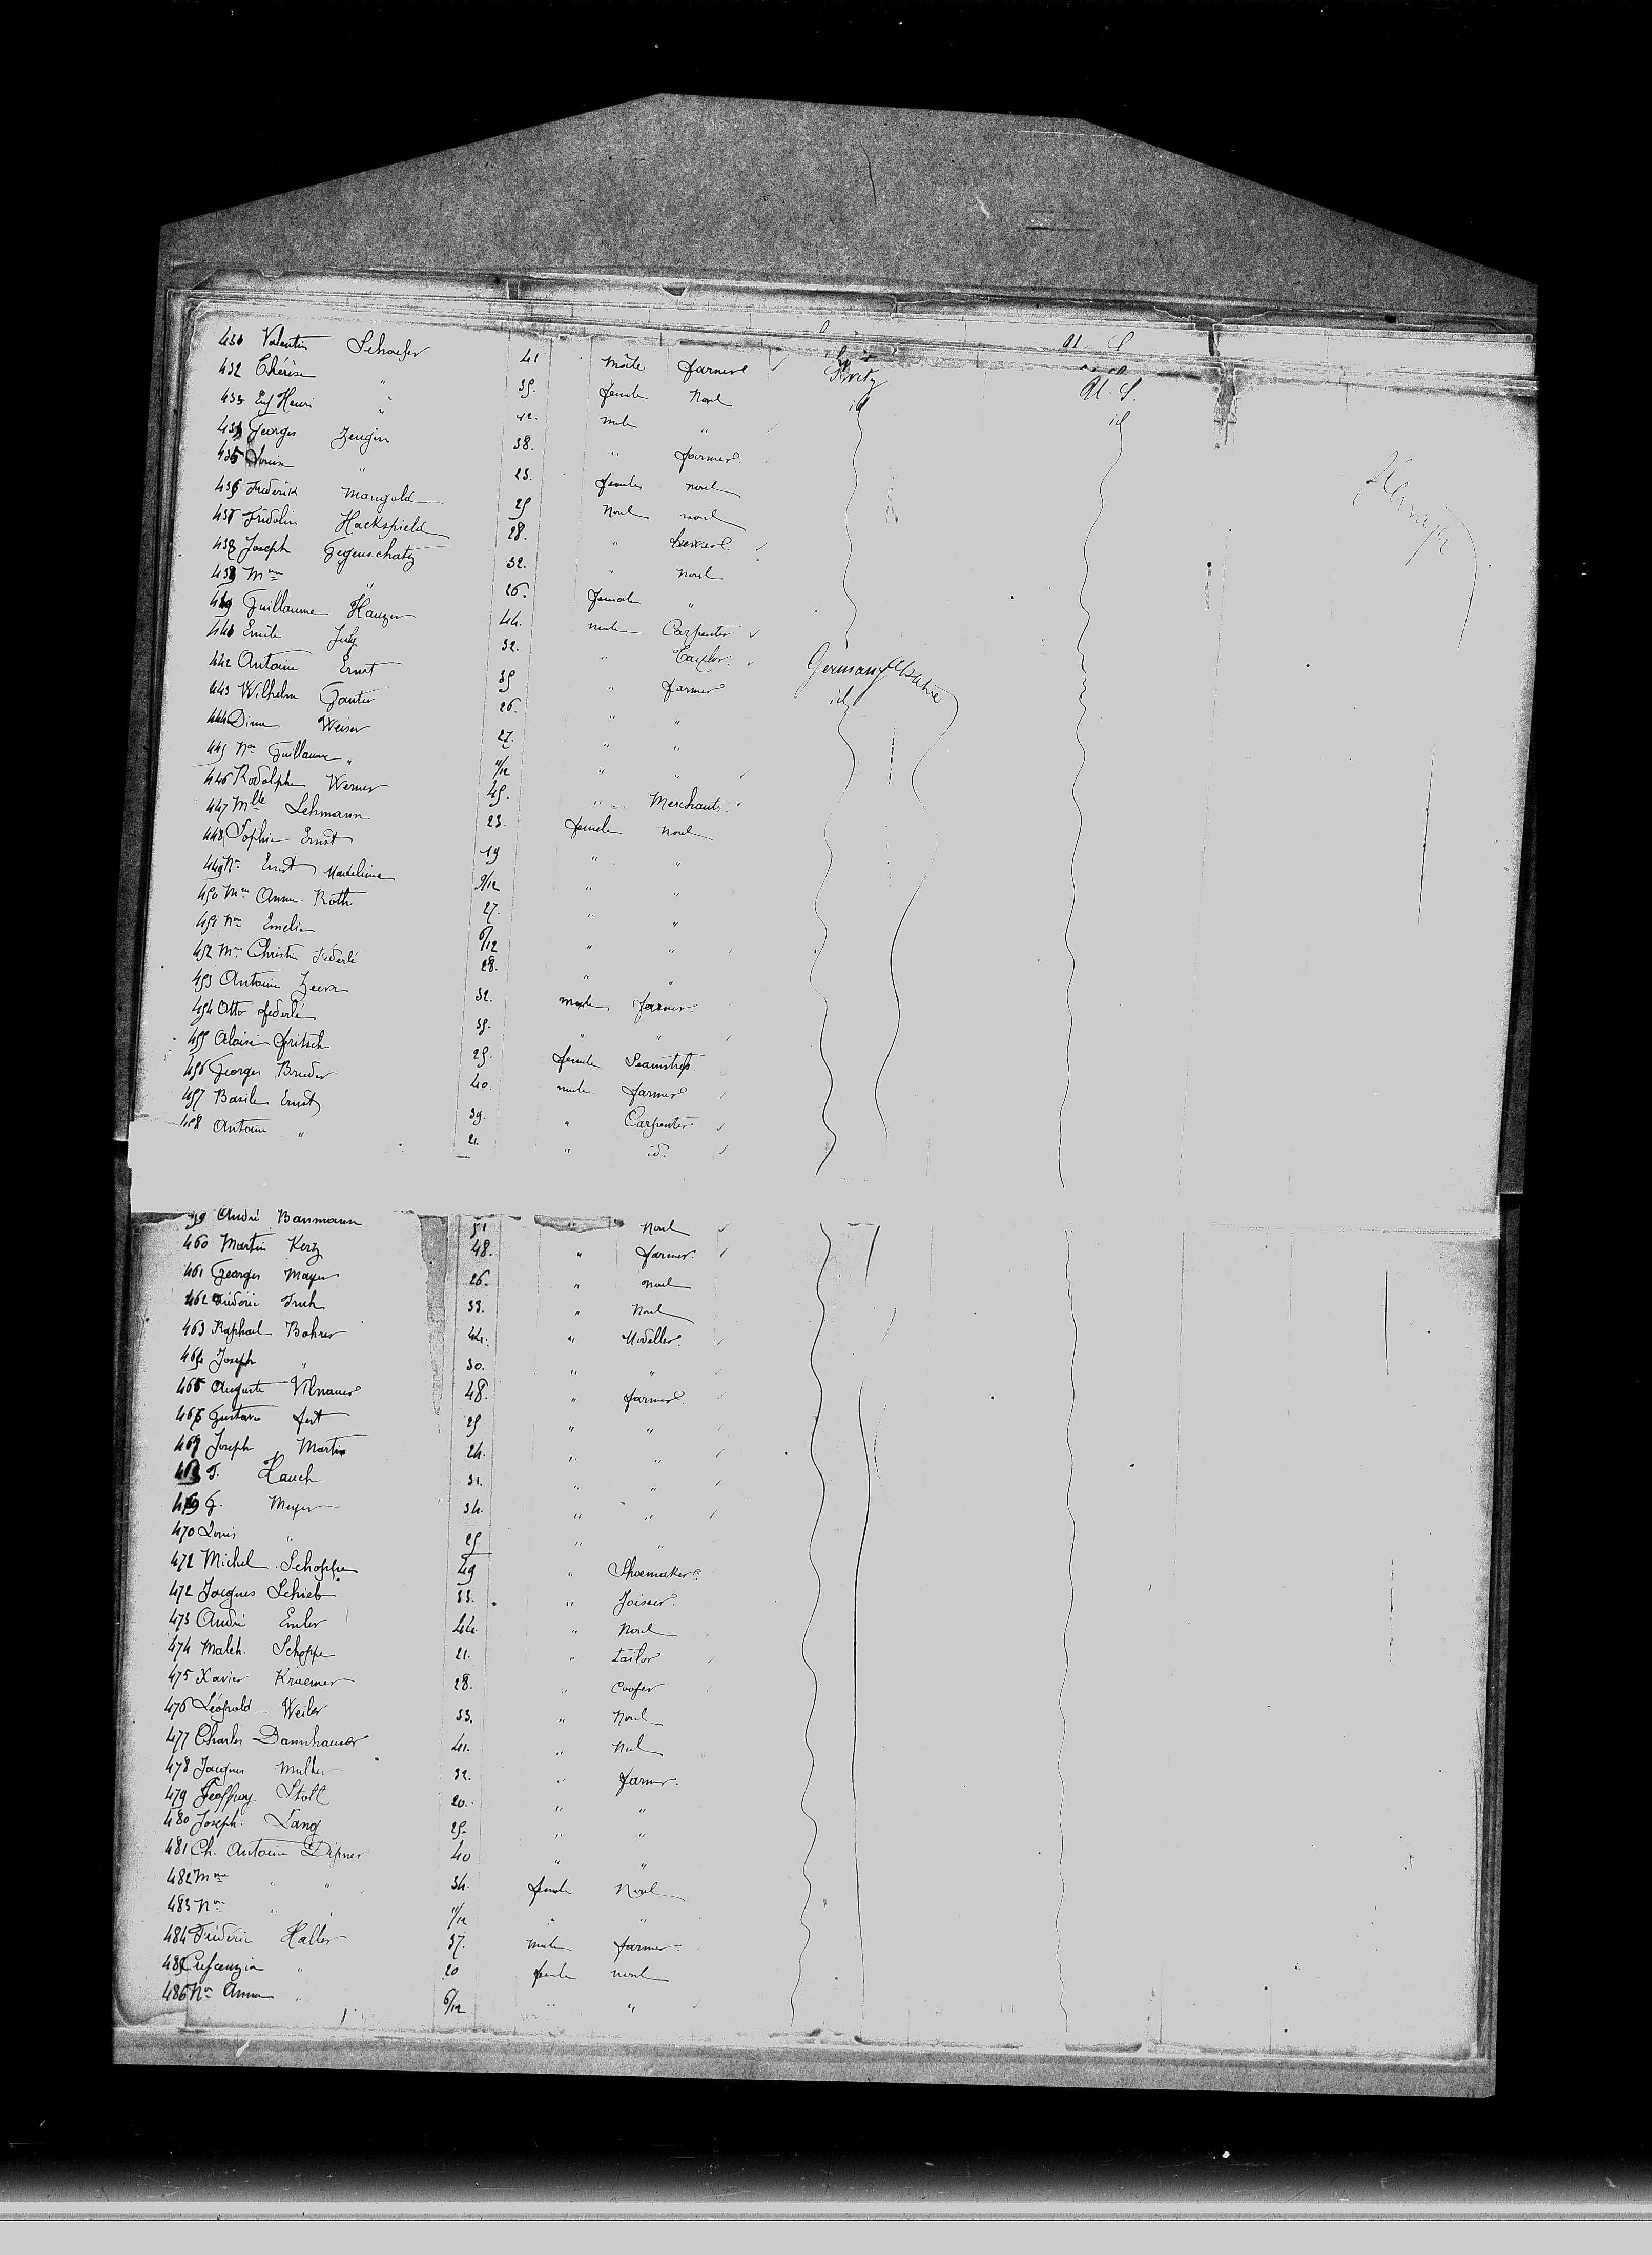 431 Valentin Schaefer 41 Mâle farmer Switz U. S.
432 Thérèse " 35. female None id id
433 Enf Henri " 12. male "
434 Georges Zeugin 38. " farmer.
435 Louise " 23. female none
436 Frederik Mangold 25 None none
437 Fridolin Hackspield 28. "
438 Joseph Gegenschatz 32. " none
439 Mme " 26. female "
440 Guillaume Hauger 44. male Carpenter
441 Emile July 32. " Taylor.
442 Antoine Ernst 35 " farmer German Alsatia
443 Wilhelm Ganter 26. " " id
444 Dina Weiser 27. " "
445 Non Guillaume " 11/12 " "
446 Rodolphe Werner 45. " Merchants.
447 Mlle Lehmann 23. female None
448 Sophie Ernst 19 " "
449 Nn Ernst Madeleine 9/12 " "
450 Mme Anna Roth 27. " "
451 Nn Emelie 6/12 " "
452 Me Christine Federlé 28. " "
453 Antoine 32. male farmer.
454 Otto Federlé 35. " "
455 Aloise Fritsch 25. female Seamstress
456 Georges Bruder 40. male farmer
457 Basile Ernst 39. " Carpenter
458 Antoine " 21. " id.
59 André Baumann 51 " None
460 Martin Kerz 48. " farmer.
461 Georges Mayer 26. " None
462 Frédéric 33. " None
463 Raphael Bohrer 44. " Modeller.
464 Joseph " 30. " "
465 Auguste Vilnauer 48. " farmer.
466 Gustave Fert 25 " "
467 Joseph Martin 24. " "
468 T. Hauch 31. " "
469 G. Meyer 34. " "
470 Louis " 25 " "
472 Michel Schopfer 49 " Shoemaker.
472 Jacques Schieb 33. " Joiner.
473 André Emler 44. " None
474 Malch. Schoppe 21. " tailor
475 Xavier Kraemer 28. " Cooper
476 Léopold Weiler 33. " None
477 Charles Dannhauser 41. " None
478 Jacques Muller 32. " farmer.
479 Geoffroy Stoll 20. " "
480 Joseph. Lang 25. " "
481 Ch. Antoine Dipner 40 " "
482 Mme " " 34. female None
483 Nn " " 11/12 " "
484 Frédéric Haller 37. male farmer.
485 Crescenzia " 20 female none
486 Nn Anna " 6/12 " "